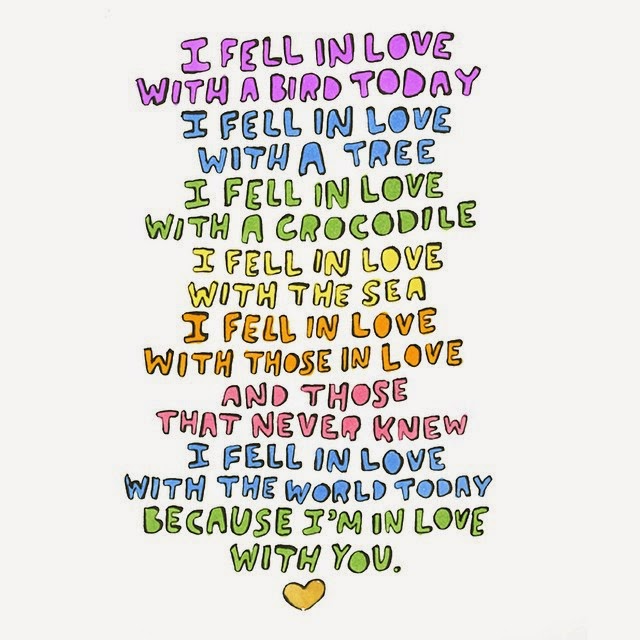 I FELL IN LOVE
WITH A BIRD TODAY
I FELL IN LOVE
WITH A TREE
I FELL IN LOVE
WITH A CROCODILE
I FELL IN LOVE
WITH THE SEA
I FELL IN LOVE
WITH THOSE IN LOVE
AND THOSE
THAT NEVER KNEW
I FELL IN LOVE
WITH THE WORLD TODAY
BECAUSE I'M IN LOVE
WITH YOU.